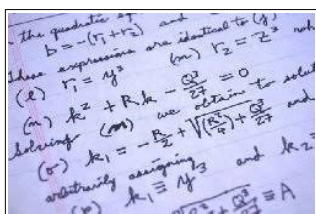 the quadratic eq
b = -(r₁+r₂) and
These expressions are identical to (y)
(l) r₁ = y³ (m) r₂ = z³
(n) k² + Rk - Q³/27 = 0
Solving (m) we obtain to solut
(o) k₁ = -R/2 + √((R²/4) + Q³/27) and
arbitrarily assigning
(p) k₁ ≡ y³ and k₂ =
Q³/27 ≡ A